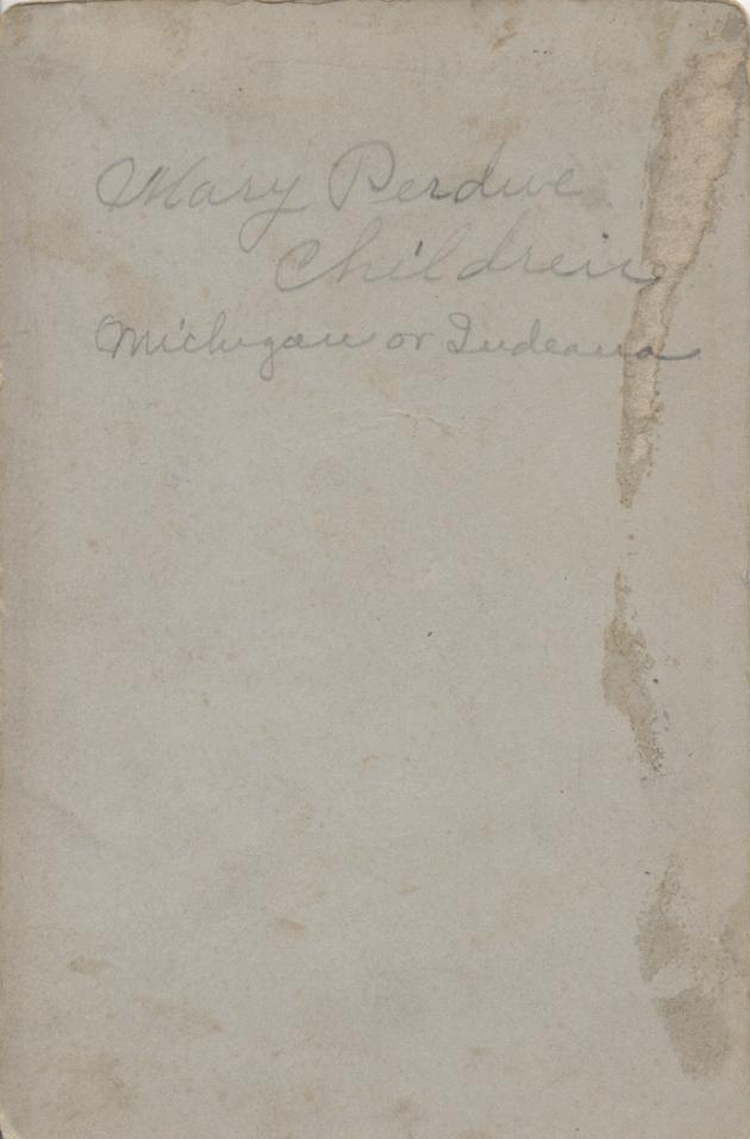 Mary Perdue
Children
Michigan or Indeana